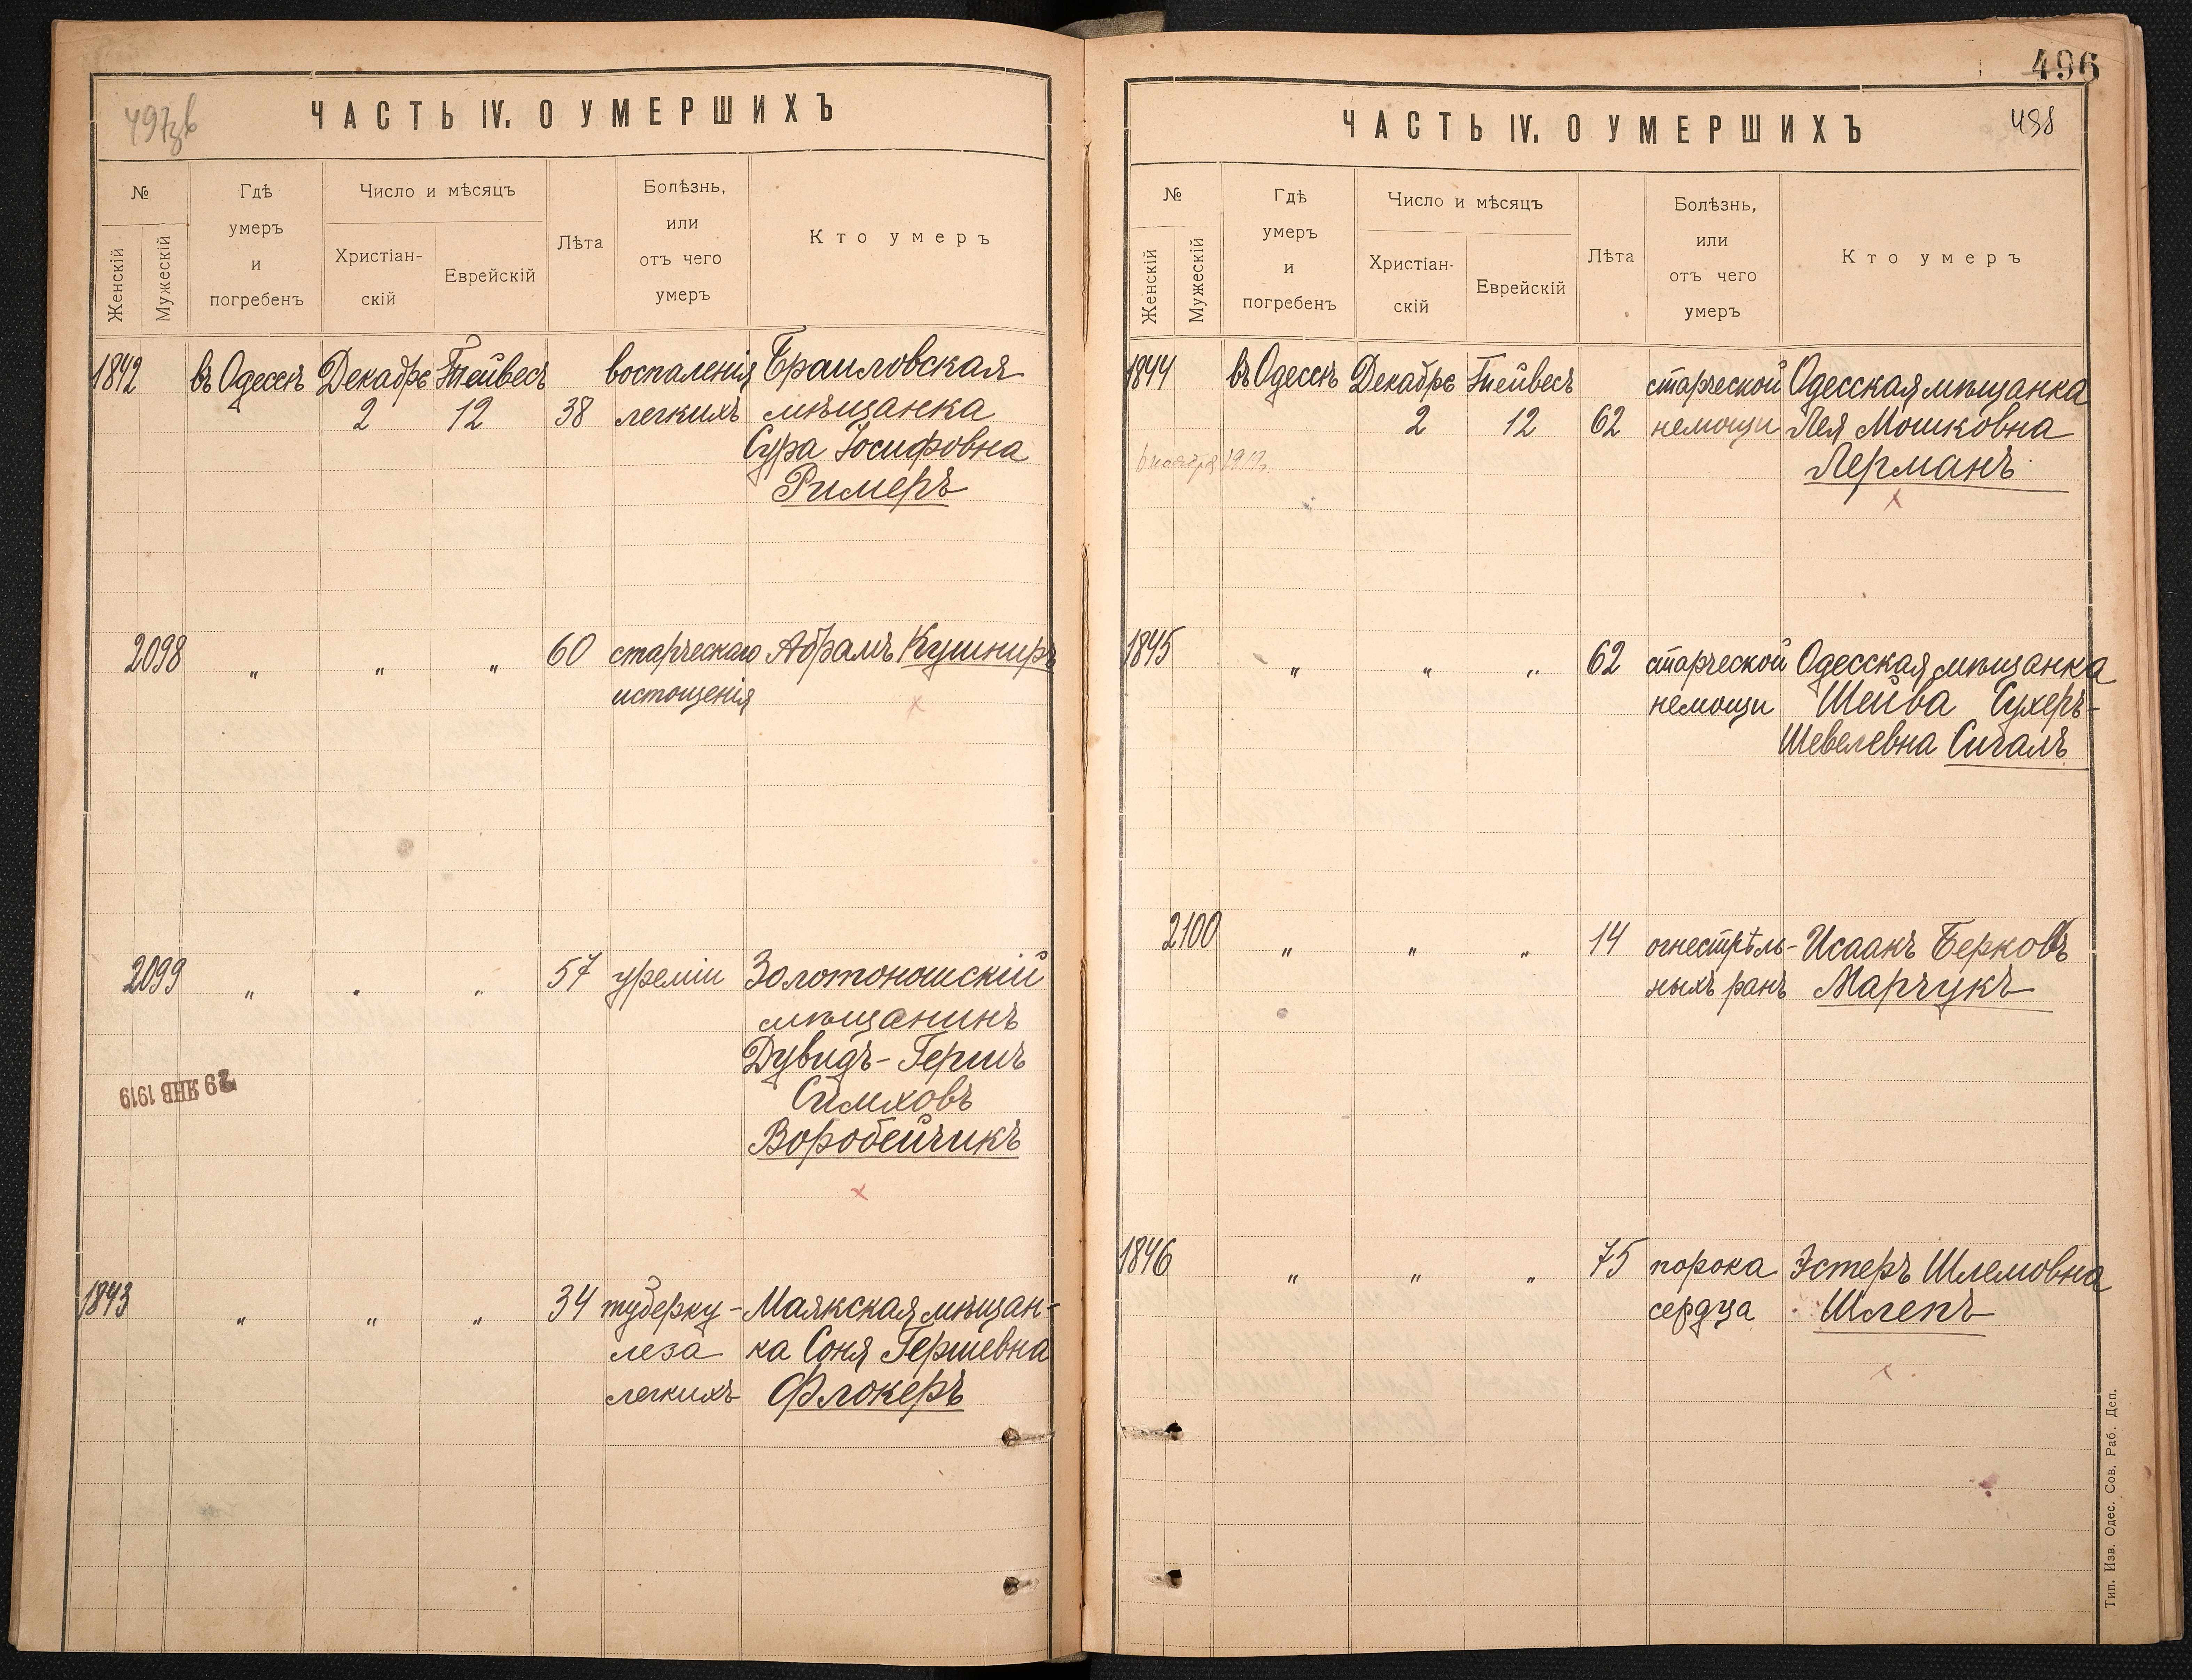 497зв
ЧАСТЬ IV. О УМЕРШИХЪ
№
Женскій
Мужескій
Гдѣ
умеръ
и
погребенъ
Число и мѣсяцъ
Христіан-
скій
Еврейскій
Лѣта
Болѣзнь,
или
отъ чего
умеръ
Кто умеръ
1842 въ Одессѣ Декабрь Тейвесъ воспаленія Браиловская
2 12 38 легкихъ мѣщанка
Сура Іосифовна
Римеръ
2098 " " " 60 старческаго Абрамъ Кушниръ
истощенія
2099 " " " 57 уреміи Золотоношскій
мѣщанинъ
Дувидъ-Гершъ
Симховъ
Воробейчикъ
29 ЯНВ 1919
1843 " " " 34 туберку- Маякская мѣщан-
леза ка Соня Гершевна
легкихъ Флокеръ
496
498
ЧАСТЬ IV. О УМЕРШИХЪ
№
Женскій
Мужескій
Гдѣ
умеръ
и
погребенъ
Число и мѣсяцъ
Христіан-
скій
Еврейскій
Лѣта
Болѣзнь,
или
отъ чего
умеръ
Кто умеръ
1844 въ Одессѣ Декабрь Тейвесъ старческой Одесская мѣщанка
2 12 62 немощи Лея Мошковна
Лерманъ
1845 " " " 62 старческой Одесская мѣщанка
немощи Шейва Сухеръ-
Шевелевна Сигалъ
2100 " " " 14 огнестрѣль- Исаакъ Берковъ
ныхъ ранъ Марчукъ
1846 " " " 75 порока Эстеръ Шлемовна
сердца Шлепъ
Тип. Изв. Одес. Сов. Раб. Деп.